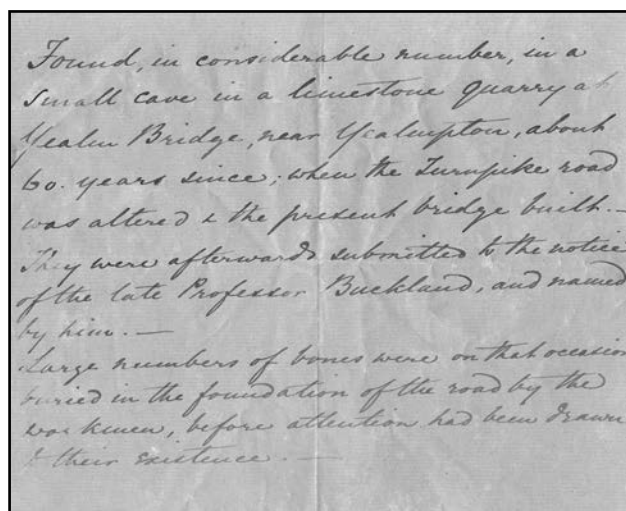 Found, in considerable number, in a
small cave in a limestone quarry at
Yealm Bridge, near Yealmpton, about
60. years since; when the Turnpike road
was altered & the present bridge built. —
They were afterwards submitted to the notice
of the late Professor Buckland, and named
by him. —
Large numbers of bones were on that occasion
buried in the foundation of the road by the
workmen, before attention had been drawn
to their existence. —